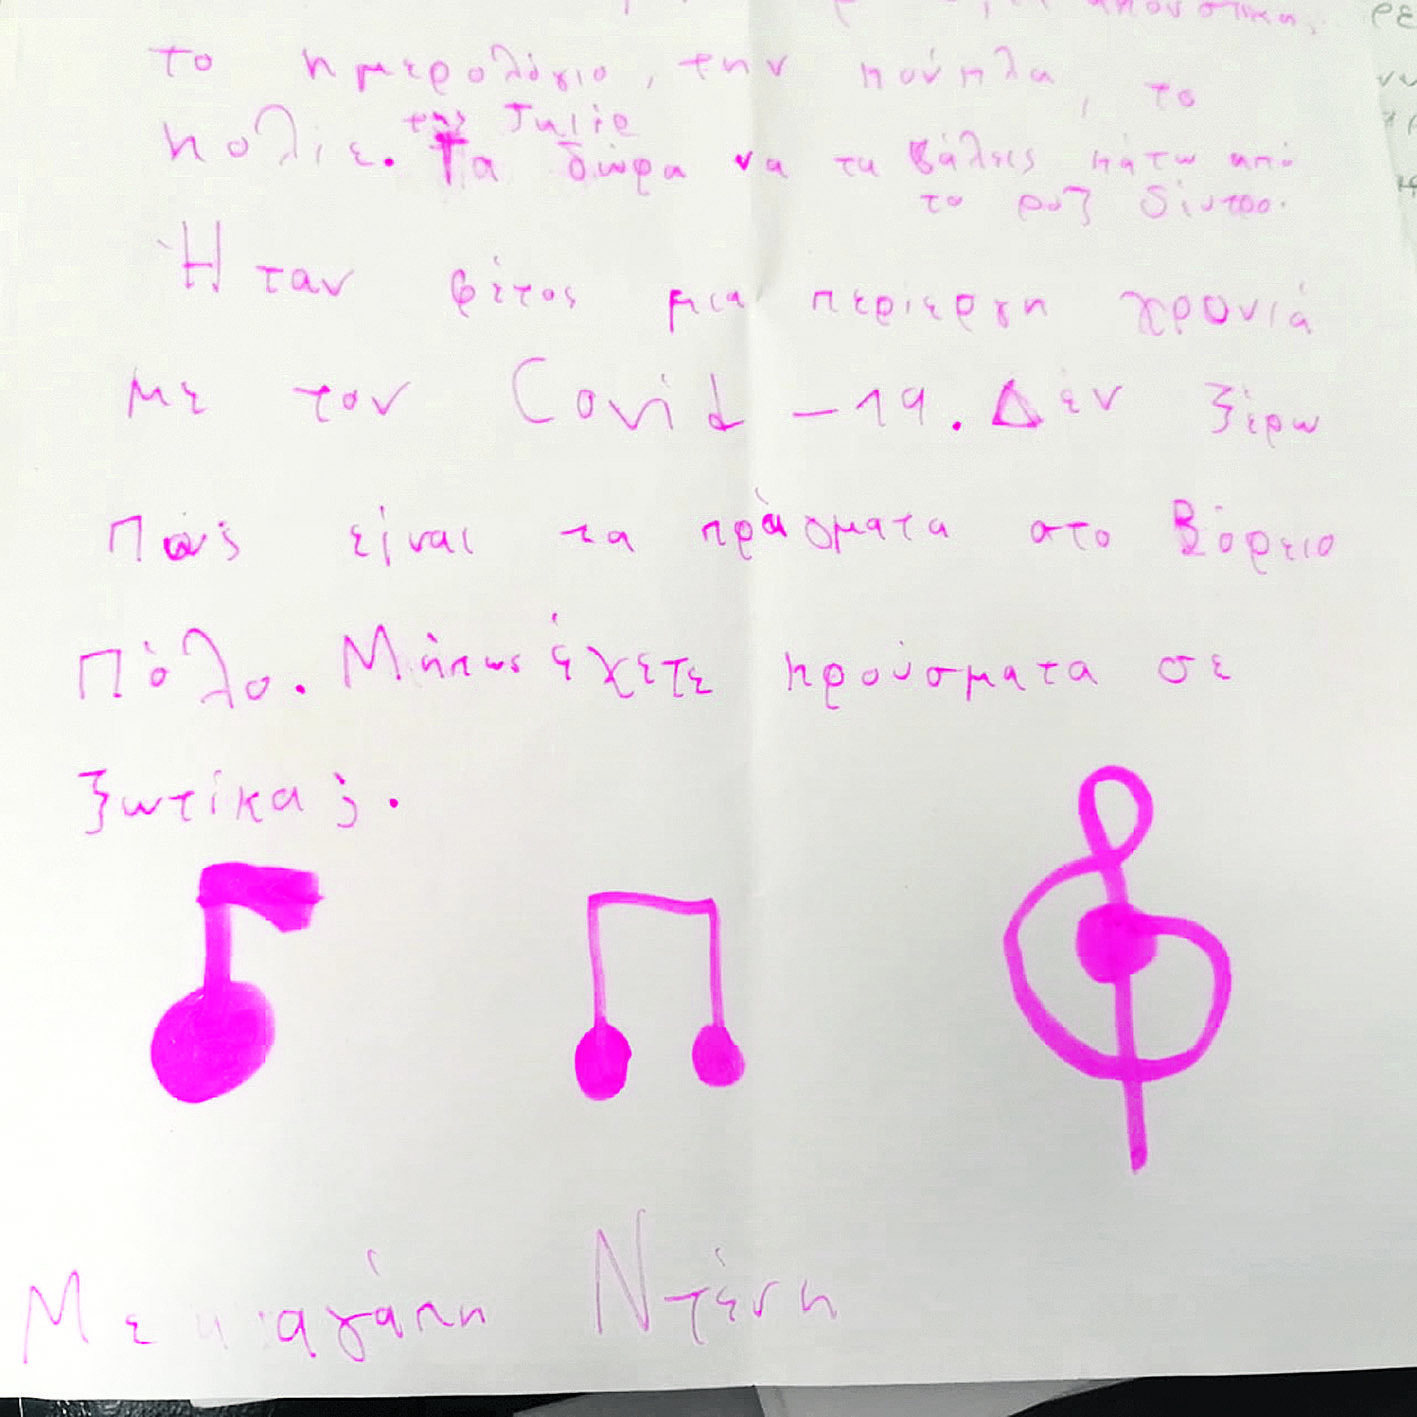 ακουστικα, ρε
το ημερολόγιο, την κούκλα, το
κολιε. της Julie
Τα δώρα να τα βάλεις κάτω από
το ροζ δέντρο.
Ήταν φέτος μια περίεργη χρονιά
με τον Covid-19. Δέν ξέρω
Πώς είναι τα πράγματα στο Βόρειο
Πόλο. Μήπως έχετε κρούσματα σε
ξωτικα;.
Με αγάπη Ντένη